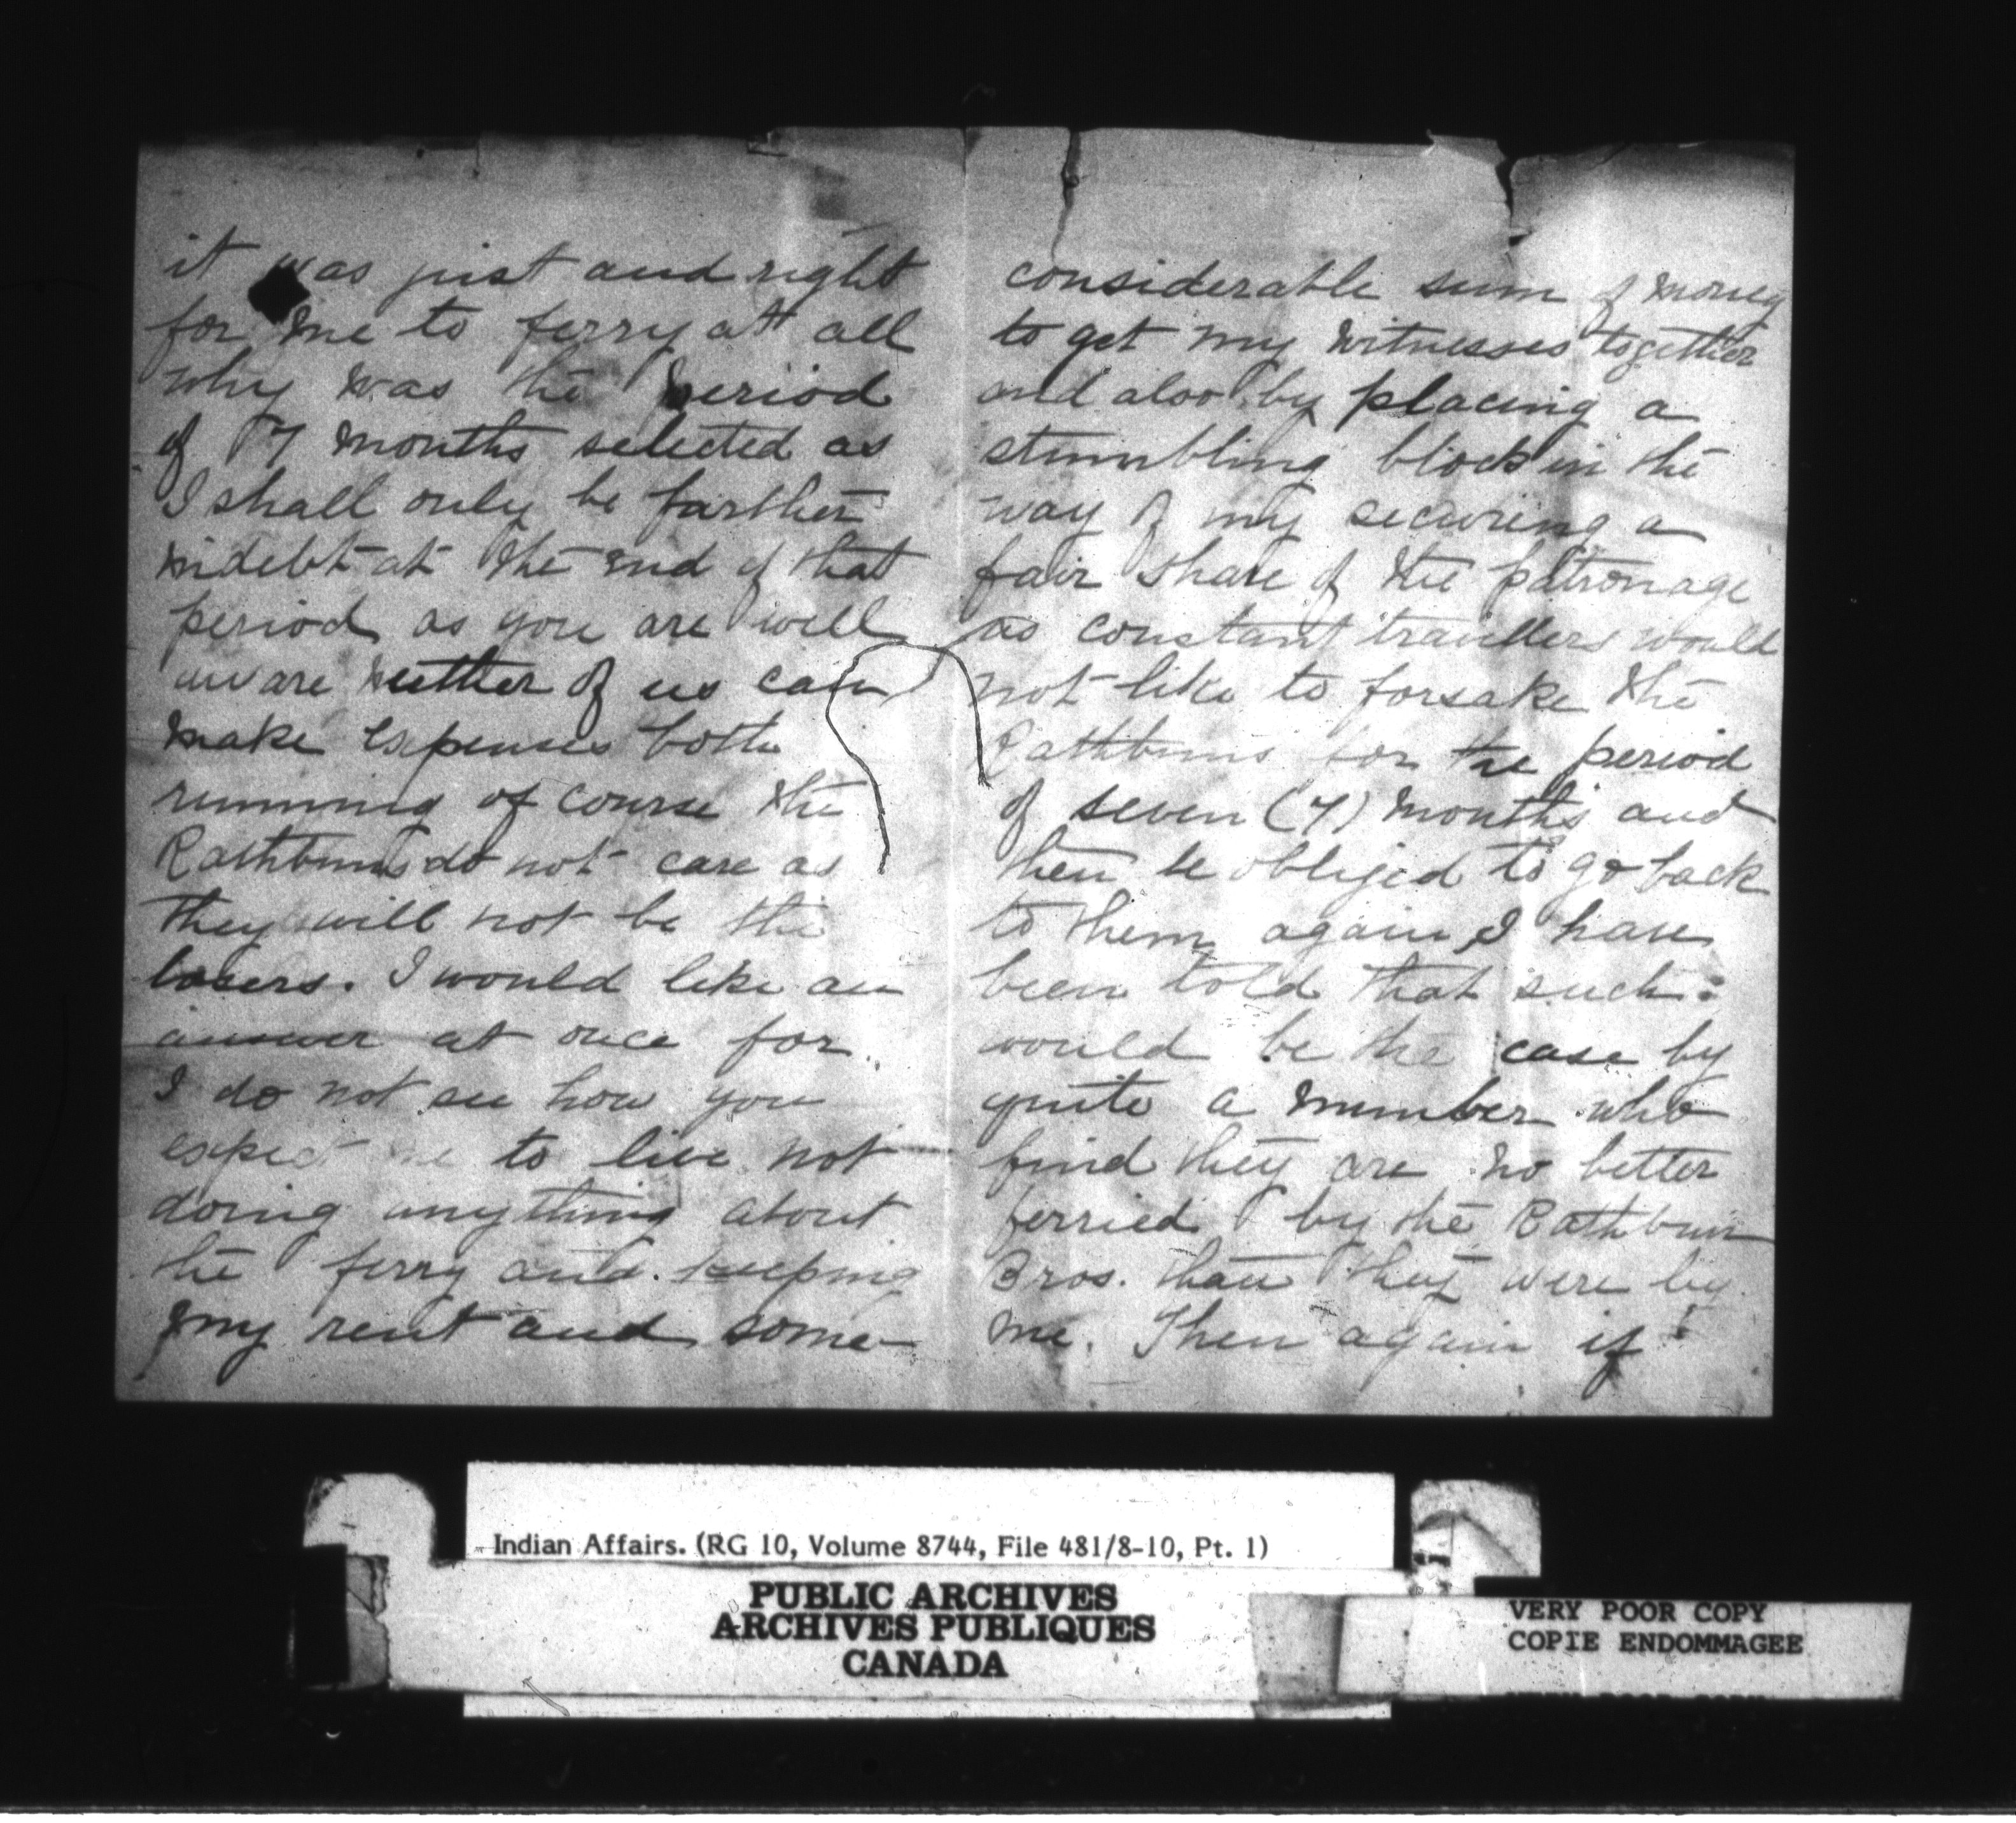 it was just and right
for me to ferry at all
why was the period
of 7 months selected as
I shall only be farther
indebt at the end of that
period as you are well
aware neither of us can
make expenses both
running of course the
Rathbuns do not care as
they will not be the
losers. I would like an
answer at once for
I do not see how you
expect me to live not
doing anything about
the ferry and keeping
my rent and some
considerable sum of money
to get my witnesses together
and also by placing a
stumbling block in the
way of my securing a
fair share of the patronage
as constant travellers would
not like to forsake the
Rathbuns for the period
of seven (7) months and
then be obliged to go back
to them again, I have
been told that such
would be the case by
quite a number who
find they are no better
ferried by the Rathbun
Bros. than they were by
me. Then again if
Indian Affairs. (RG 10, Volume 8744, File 481/8-10, Pt. 1)
PUBLIC ARCHIVES
ARCHIVES PUBLIQUES
CANADA
VERY POOR COPY
COPIE ENDOMMAGEE